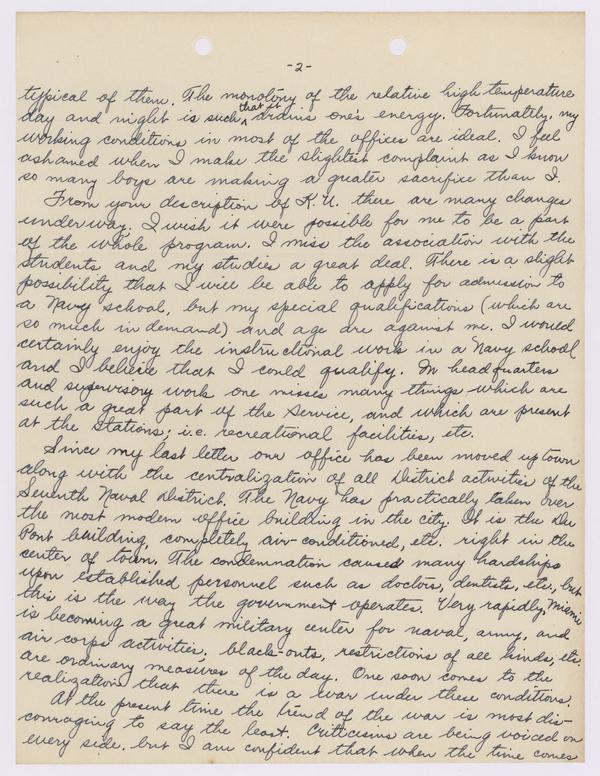 -2-
typical of them. The monotony of the relative high temperature
day and night is such that it drains one's energy. Fortunately, my
working conditions in most of the offices are ideal. I feel
ashamed when I make the slightest complaint as I know
so many boys are making a greater sacrifice than I.
From your description of K.U. there are many changes
underway. I wish it were possible for me to be a part
of the whole program. I miss the association with the
students and my studies a great deal. There is a slight
possibility that I will be able to apply for admission to
a Navy school, but my special qualifications (which are
so much in demand) and age are against me. I would
certainly enjoy the instructional work in a Navy school
and I believe that I could qualify. In headquarters
and supervisory work one misses many things which are
such a great part of the Service, and which are present
at the Stations; i.e. recreational facilities, etc.
Since my last letter our office has been moved uptown
along with the centralization of all District activities of the
Seventh Naval District. The Navy has practically taken over
the most modern office building in the city. It is the Du
Pont building, completely air-conditioned, etc. right in the
center of town. The condemnation caused many hardships
upon established personnel such as doctors, dentists, etc., but
this is the way the government operates. Very rapidly, Miami
is becoming a great military center for naval, army, and
air corps activities; black-outs, restrictions of all kinds, etc.
are ordinary measures of the day. One soon comes to the
realization that there is a war under these conditions.
At the present time the trend of the war is most dis-
couraging to say the least. Criticisms are being voiced on
every side, but I am confident that when the time comes